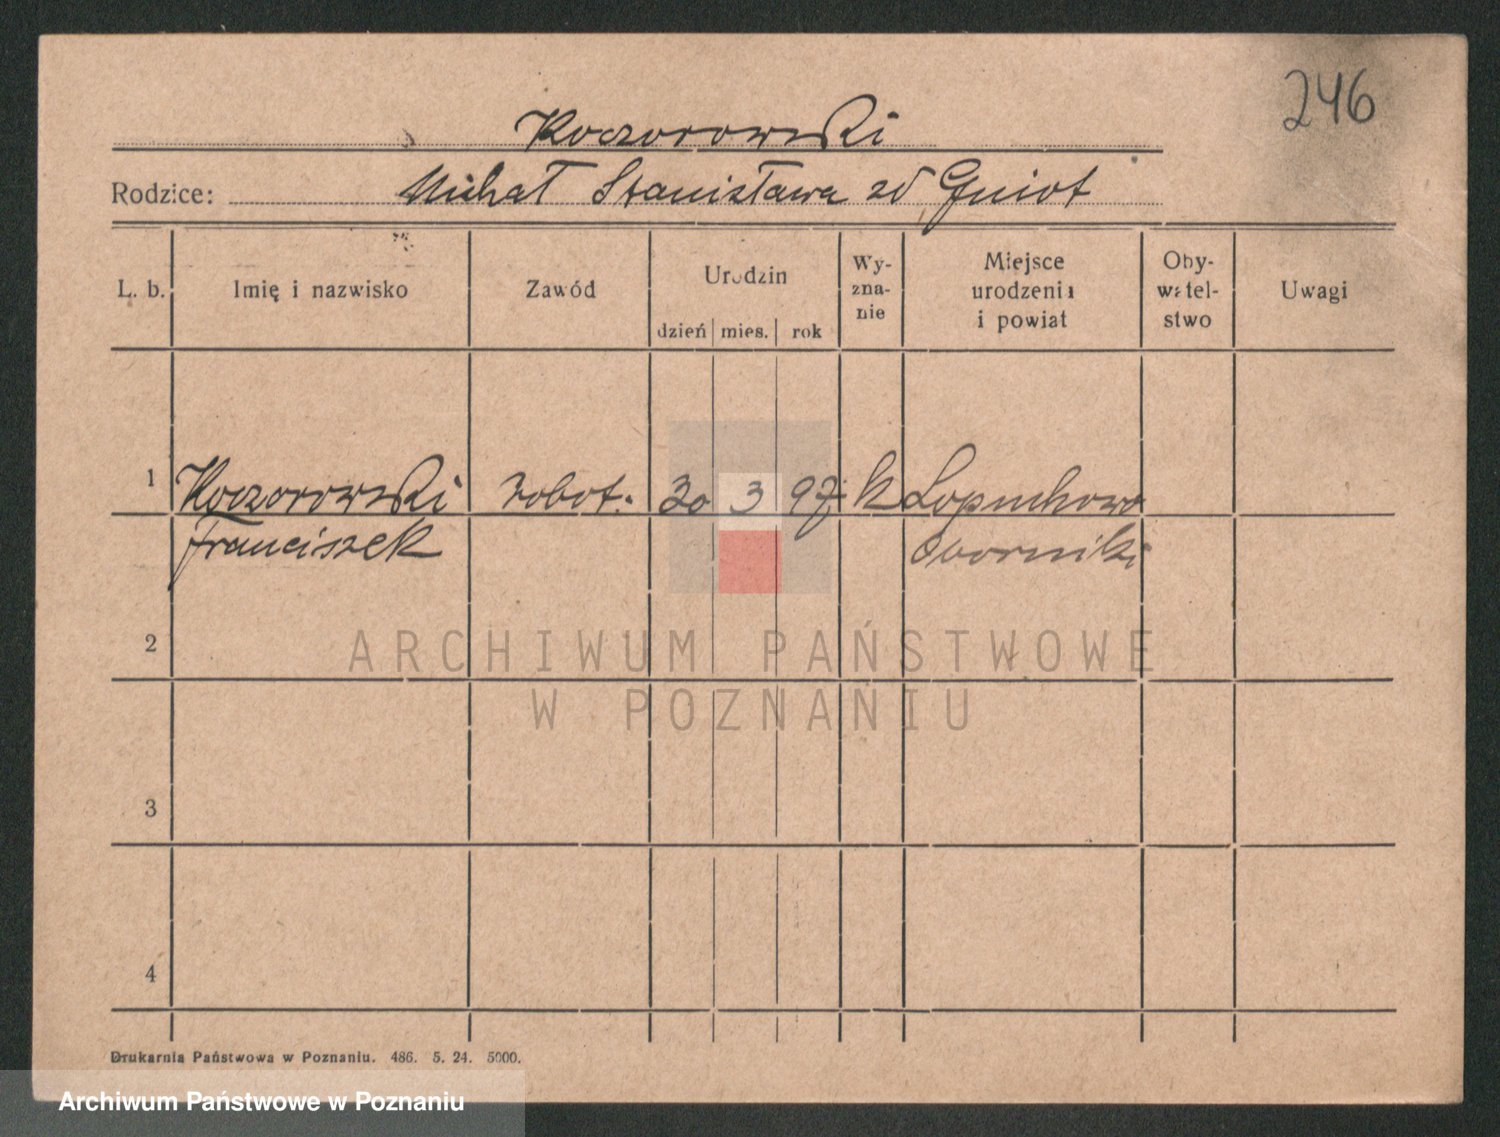 246
Koczorowski
Rodzice: Michał Stanisława zd Gniot
L. b. Imię i nazwisko Zawód Urodzin dzień mies. rok Wy-
zna-
nie Miejsce
urodzenia
i powiat Oby-
watel-
stwo Uwagi
1 Koczorowski robot. 30 3 97. k Łopuchowo
Franciszek Oborniki
2
ARCHIWUM PAŃSTWOWE
W POZNANIU
3
4
Drukarnia Państwowa w Poznaniu. 486. 5. 24. 5000.
Archiwum Państwowe w Poznaniu